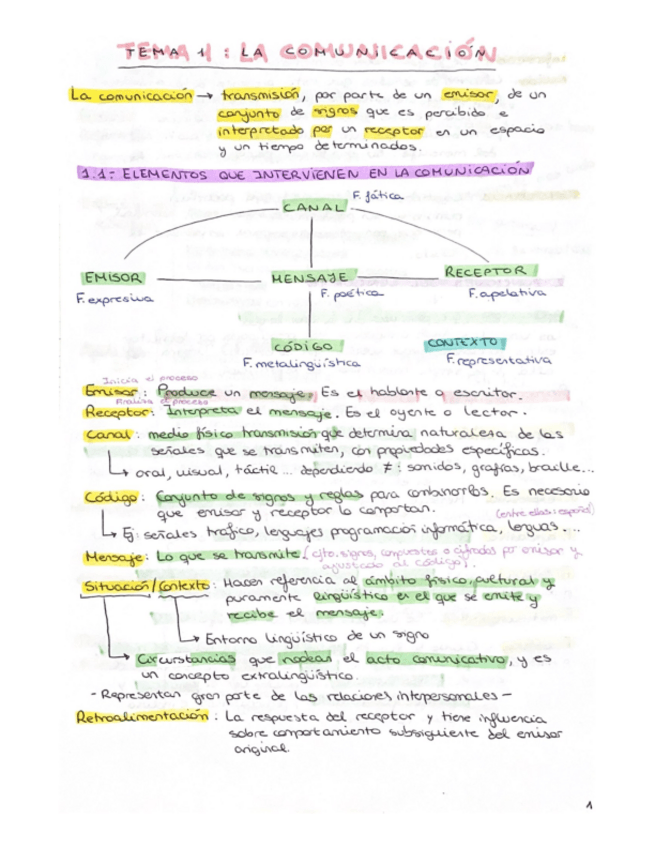 TEMA 1: LA COMUNICACIÓN
La comunicación → transmisión, por parte de un emisor, de un
conjunto de signos que es percibido e
interpretado por un receptor en un espacio
y un tiempo determinados.
1.1: ELEMENTOS QUE INTERVIENEN EN LA COMUNICACIÓN
CANAL F. fática
EMISOR MENSAJE RECEPTOR
F. expresiva F. poética F. apelativa
CÓDIGO CONTEXTO
F. metalingüística F. representativa
Inicia el proceso
Emisor: Produce un mensaje. Es el hablante o escritor.
Finaliza el proceso
Receptor: Interpreta el mensaje. Es el oyente o lector.
Canal: medio físico transmisión que determina naturaleza de las
señales que se transmiten, con propiedades específicas.
↳ oral, visual, táctil... dependiendo ≠: sonidos, grafías, braille...
Código: Conjunto de signos y reglas para combinarlos. Es necesario
que emisor y receptor lo compartan. (entre ellas: español)
↳ Ej: señales trafico, lenguajes programación informática, lenguas...
Mensaje: Lo que se transmite (cjto. signos, compuestos o cifrados por emisor y
ajustado al código).
Situación/Contexto: Hacen referencia al ámbito físico, cultural y
puramente lingüístico en el que se emite y
recibe el mensaje.
↳ Entorno lingüístico de un signo
↳ Circunstancias que rodean el acto comunicativo, y es
un concepto extralingüístico.
- Representan gran parte de las relaciones interpersonales -
Retroalimentación: La respuesta del receptor y tiene influencia
sobre comportamiento subsiguiente del emisor
original.
1